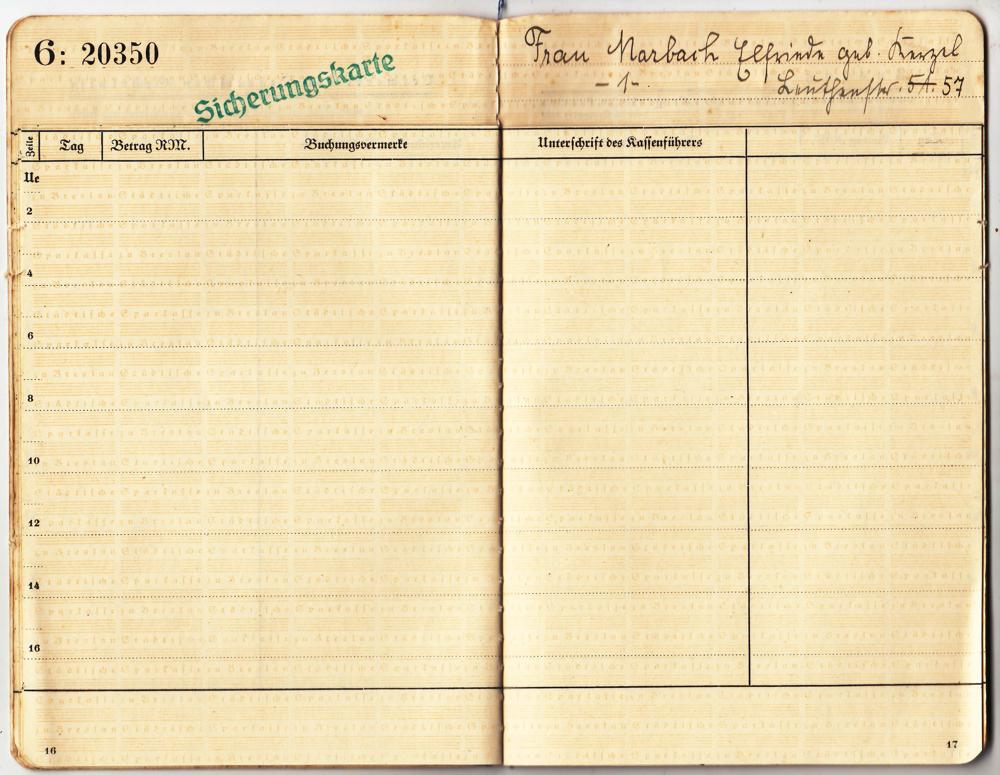 6: 20350
Sicherungskarte
Frau Marbach Elfriede geb. Kerzel
- 1 -
Leuthenstr. 51. 57
Zeile
Tag
Betrag RM.
Buchungsvermerke
Unterschrift des Kassenführers
Ue
2
4
6
8
10
12
14
16
16
17